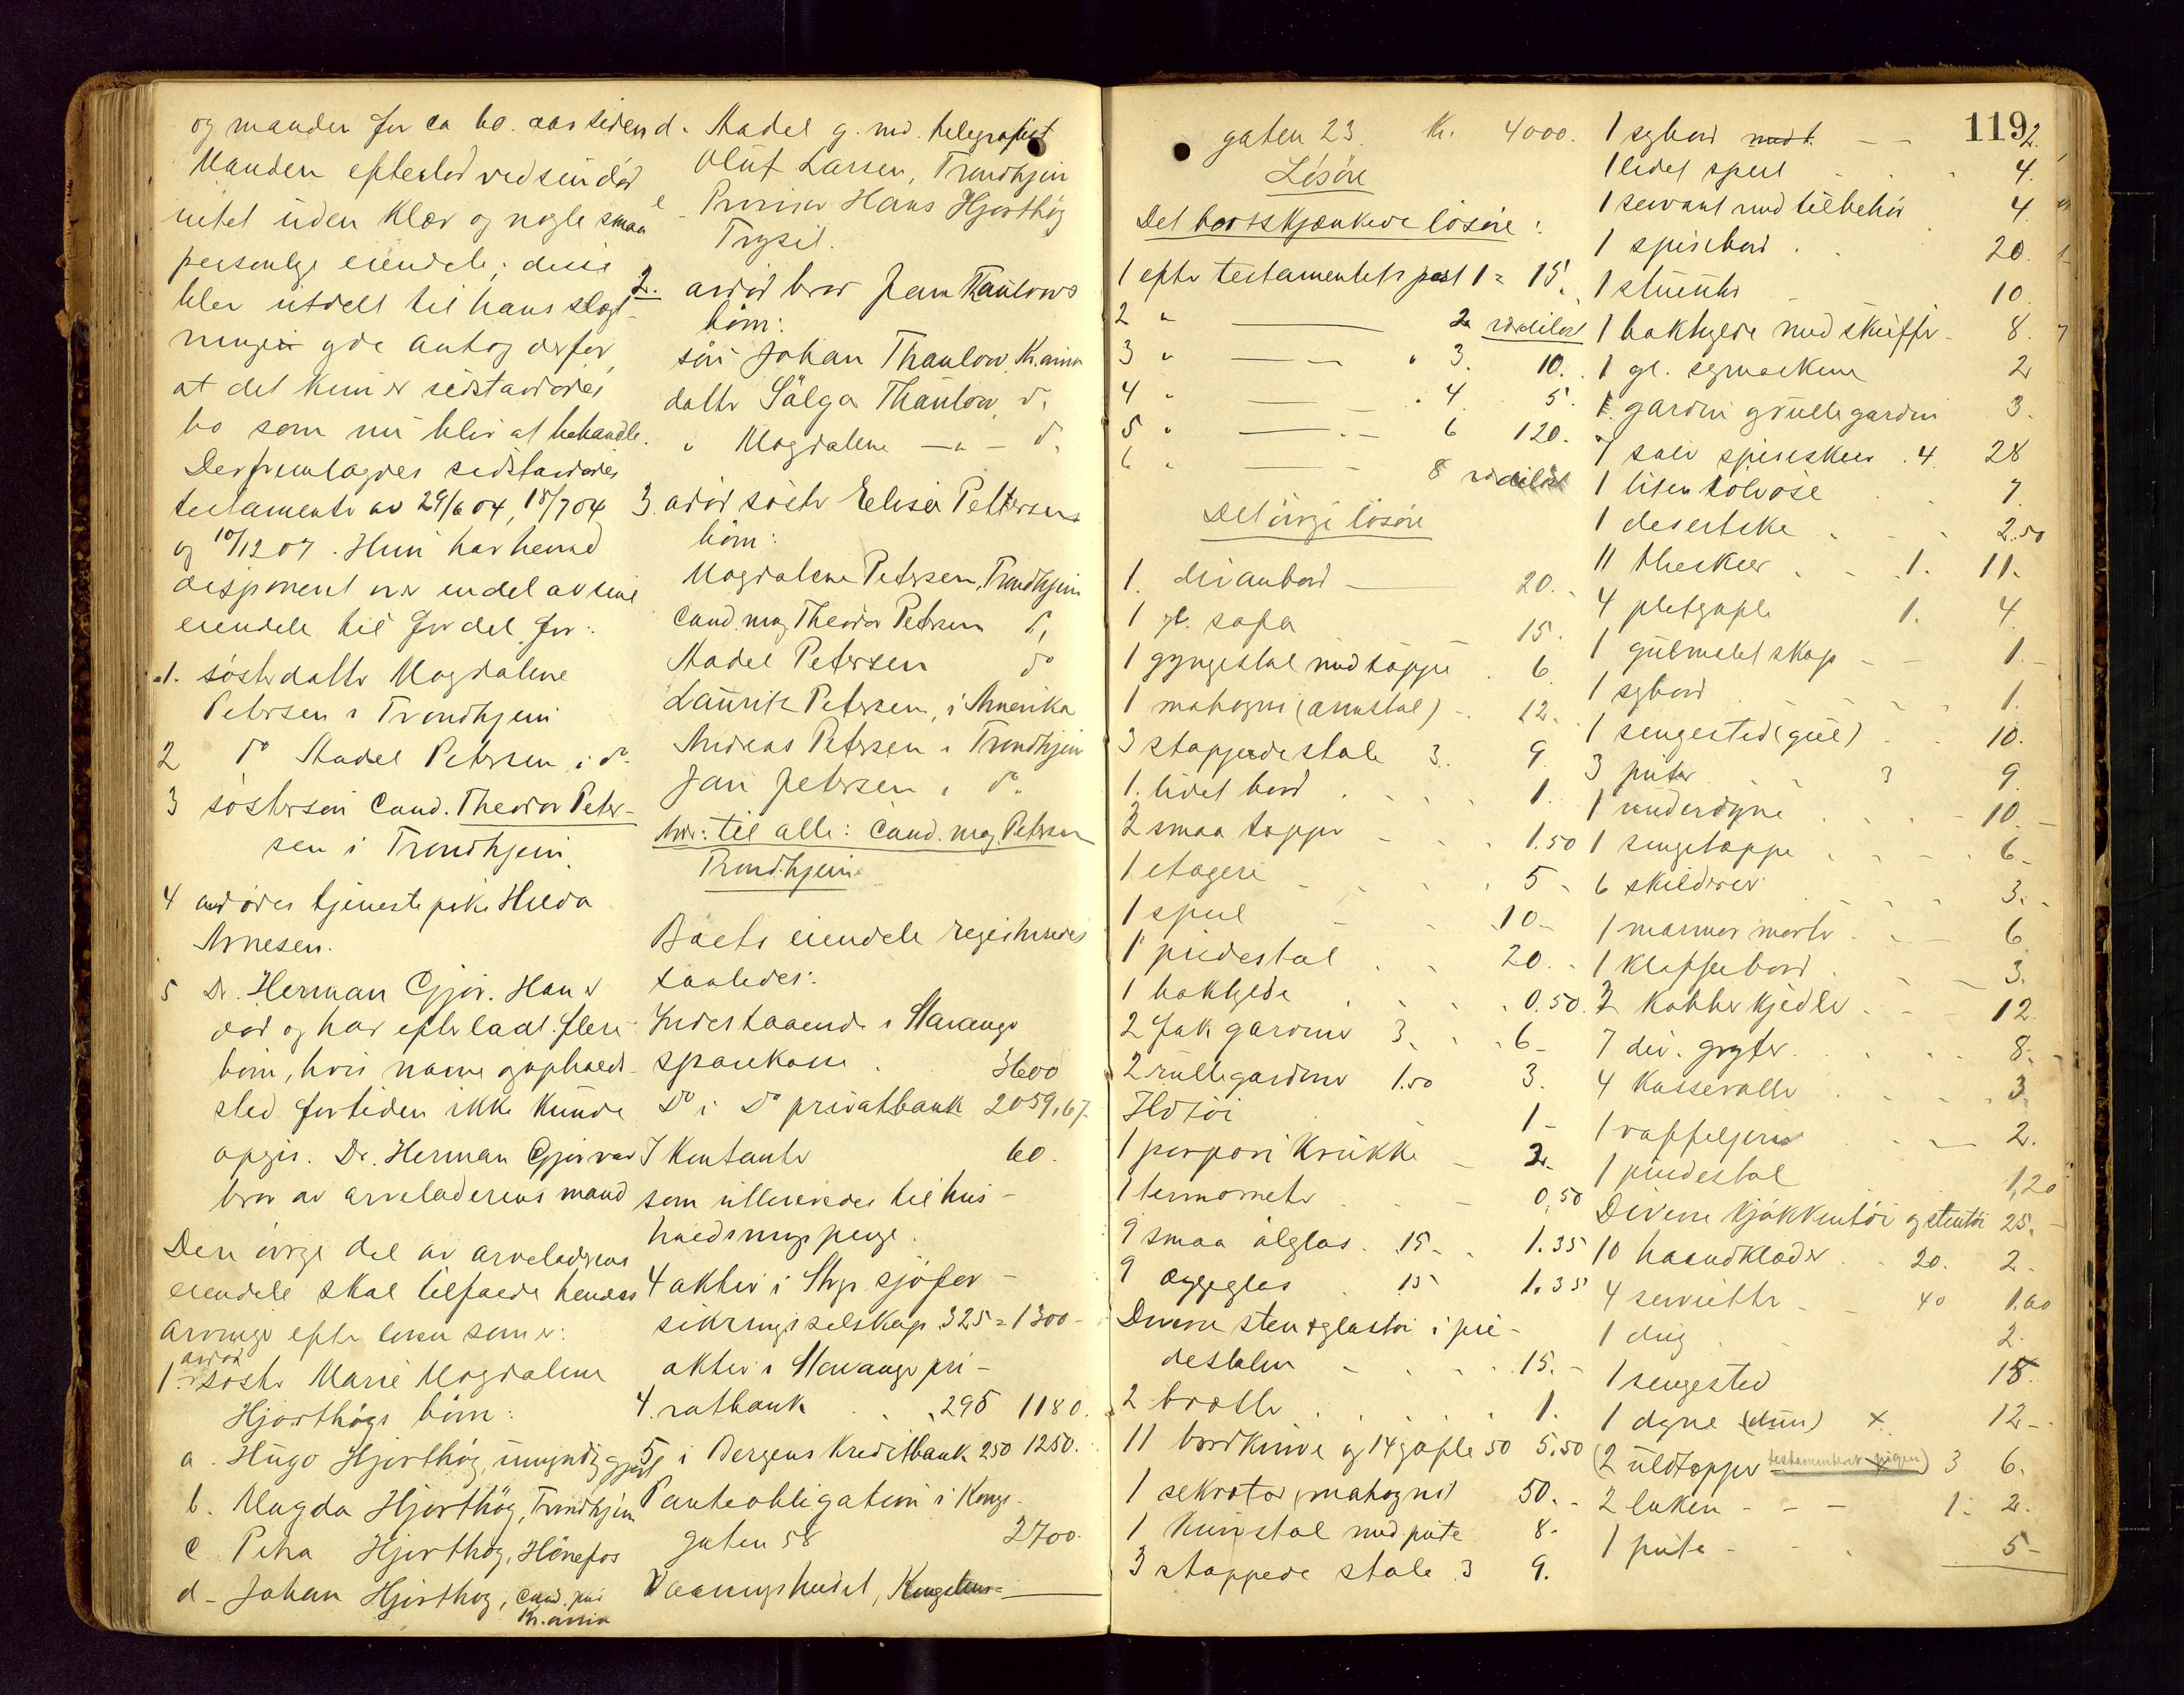 og manden for ca 60. aar siden
Manden efterlod ved sin død
intet uden klær og nogle smaa
personlige eiendele; disse
blev utdelt til hans slegt-
ninge og de antog derfor,
at det kun er sidstavdødes
bo som nu blir at behandle.
Der fremlagdes sidstavdødes
testamente av 29/6 04, 18/7 04
og 10/12 07. Hun har herved
disponert over endel av sine
eiendele til fordel for:
1. søsterdatter Magdalene
Petersen i Trondhjem
2 do Aadel Petersen i do
3 søstersøn Cand. Theodor Peter-
sen i Trondhjem
4 avdødes tjenestepike Hilda
Arnesen.
5 Dr. Herman Gjør. Han er
død og har efterladt flere
børn, hvis navne og opholds-
sted fortiden ikke kunde
opgis. Dr. Herman Gjør var
bror av arveladerens mand
Den øvrige del av arveladerens
eiendele skal tilfalde hendes
arvinger efter loven som er:
avdød
1. søster Marie Magdalene
Hjorthøgs børn:
a. Hugo Hjorthøg, umyndiggjort
b. Magda Hjorthøg, Trondhjem
c. Petra Hjorthøg, Hønefos
d - Johan Hjorthøg, cand.
Kr.ania
d. Aadel g. m. telegrafist
Oluf Larsen, Trondhjem
e - Provisor Hans Hjorthøg
Trysil.
2. avdød bror Jan Thaulows
børn:
søn Johan Thaulow, Kr.ania
datter Sålga Thaulow, do
" Magdalene — " — do
3. avdød søster Elisa Pettersens
børn:
Magdalene Petersen, Trondhjem
Cand. mag Theodor Petersen do
Aadel Petersen do
Lauritz Petersen, i Amerika
Andreas Petersen i Trondhjem
Jan Petersen i do
Adr: til alle: Cand. mag. Petersen
Trondhjem
Boets eiendele registreredes
saaledes:
Indestaaende i Stavanger
sparekasse . 3600
Do i Do privatbank 2059,67
I Kontanter 60.
som utleveredes til hus-
holdningspenge.
4 aktier i Stvgr sjøfor-
sikringsselskap 325 = 1300-
aktier i Stavanger pri-
4. vatbank . . 295 1180.
5 i Bergens Kreditbank 250 1250.
Panteobligation i Kongs-
gaten 58 2700.
Vaaningshuset, Kongstens-
gaten 23. Kr. 4000.
Løsøre
Det bortskjænkede løsøre:
1 efter testamentets post 1 = 15.
2 " — 2 værdiløst
3 " — " 3. 10.
4 " — " 4. 5.
5 " — 6 120.
6 " — 8 værdiløst
Det øvrige løsøre
1. divanbord — 20.
1 gl. sofa 15.
1 gyngestol med tæppe . 6
1 mahogni (armstol) - 12.
3 stoppede stole 3. 9.
1. lidet bord . . . 1.
2 smaa tæpper - . . 1.50
1 etagere . . 5 -
1 speil - . 10-
1 piedestal . . 20. -
1 boktylde . . . 0.50.
2 fak gardiner 3. . . 6-
2 rullegardiner 1.50 3.
Ildtøi 1-
1 porpori krukke — 2-
1 termometer . . - 0,50
9 smaa ølglas . 15 - . 1.35
9 æggeglas . 15 1.35
Diverse sten & glastøi i pie-
destalen - . . . 15. -
2 bretter . . . . . 1.
11 bordknive og 14 gafle 50 5.50
1 sekretær, mahogni 50. -
1 kurvstol med pute 8.
3 stoppede stole 3 9.
119
1 sybord — 2.
1 lidet speil . . . 4.
1 servant med tilbehør 4
1 spisebord . . 20.
1 stueuhr - 10.
1 boktylde med skuffer - 8.
1 gl. symaskine 2
1. gardin og rullegardin 3.
7 sølv spiseskeer . 4. 28
1 liten sølvøse 7.
1 desertske . . . 2.50
11 theskeer . - . 1. 11.
4 pletgafle 1. 4.
1 gulmalet skap - - 1.-
1 sybord . . . . 1.
1 sengested (gul) . . 10.
3 puter . . 3 9.
1 underdyne . . . 10.-
1 sengetæppe . . . 6.-
6 skilderier . . . . 3. -
1 marmor morter . . - 6
1 klaffebord . . - 3.
2 kobberkjedler . . - 12.
7 div. gryter . . . 8.-
4 kasseroller . . . . 3
1 vaffeljern . . — 2.
1 piedestal . . 1,20
Diverse kjøkkentøi og stentøi 25.-
10 haandklæder . . 20. 2.
4 servietter - - 40 1.60
1 dug . . 2.
1 sengested 15.
1 dyne (dun) x 12-
(2 uldtæpper testamenteret pigen) 3 6.
2 laken - - - 1. 2.
1 pute - - . 5-